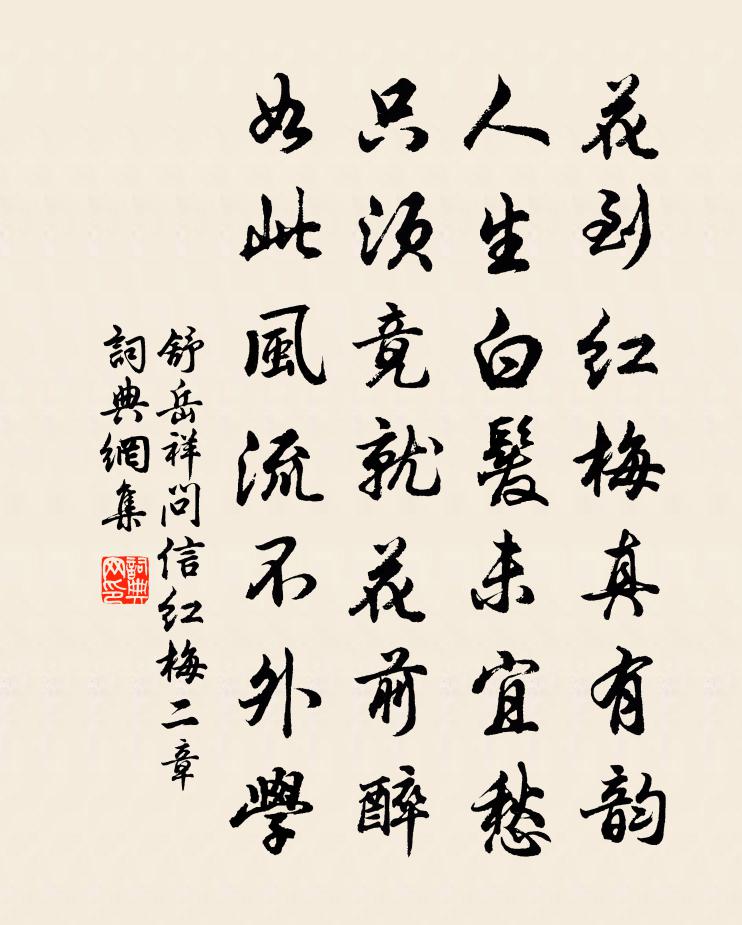 花到红梅真有韵
人生白髮未宜愁
只须竟就花前醉
如此風流不外學
舒岳祥問信红梅二章
詞典網集
詞典网印